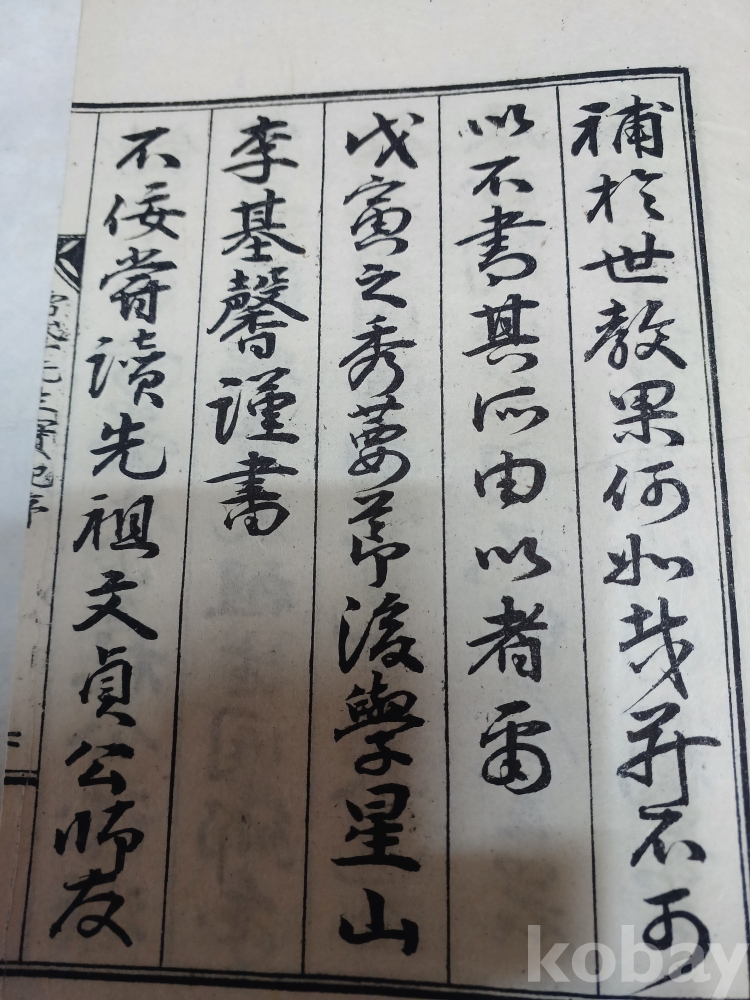 補於世敎果何如哉并不可
以不書其所由以者爾
戊寅之秀葽節後學星山
李基馨謹書
不佞嘗讀先祖文貞公師友
先生實紀序
kobay